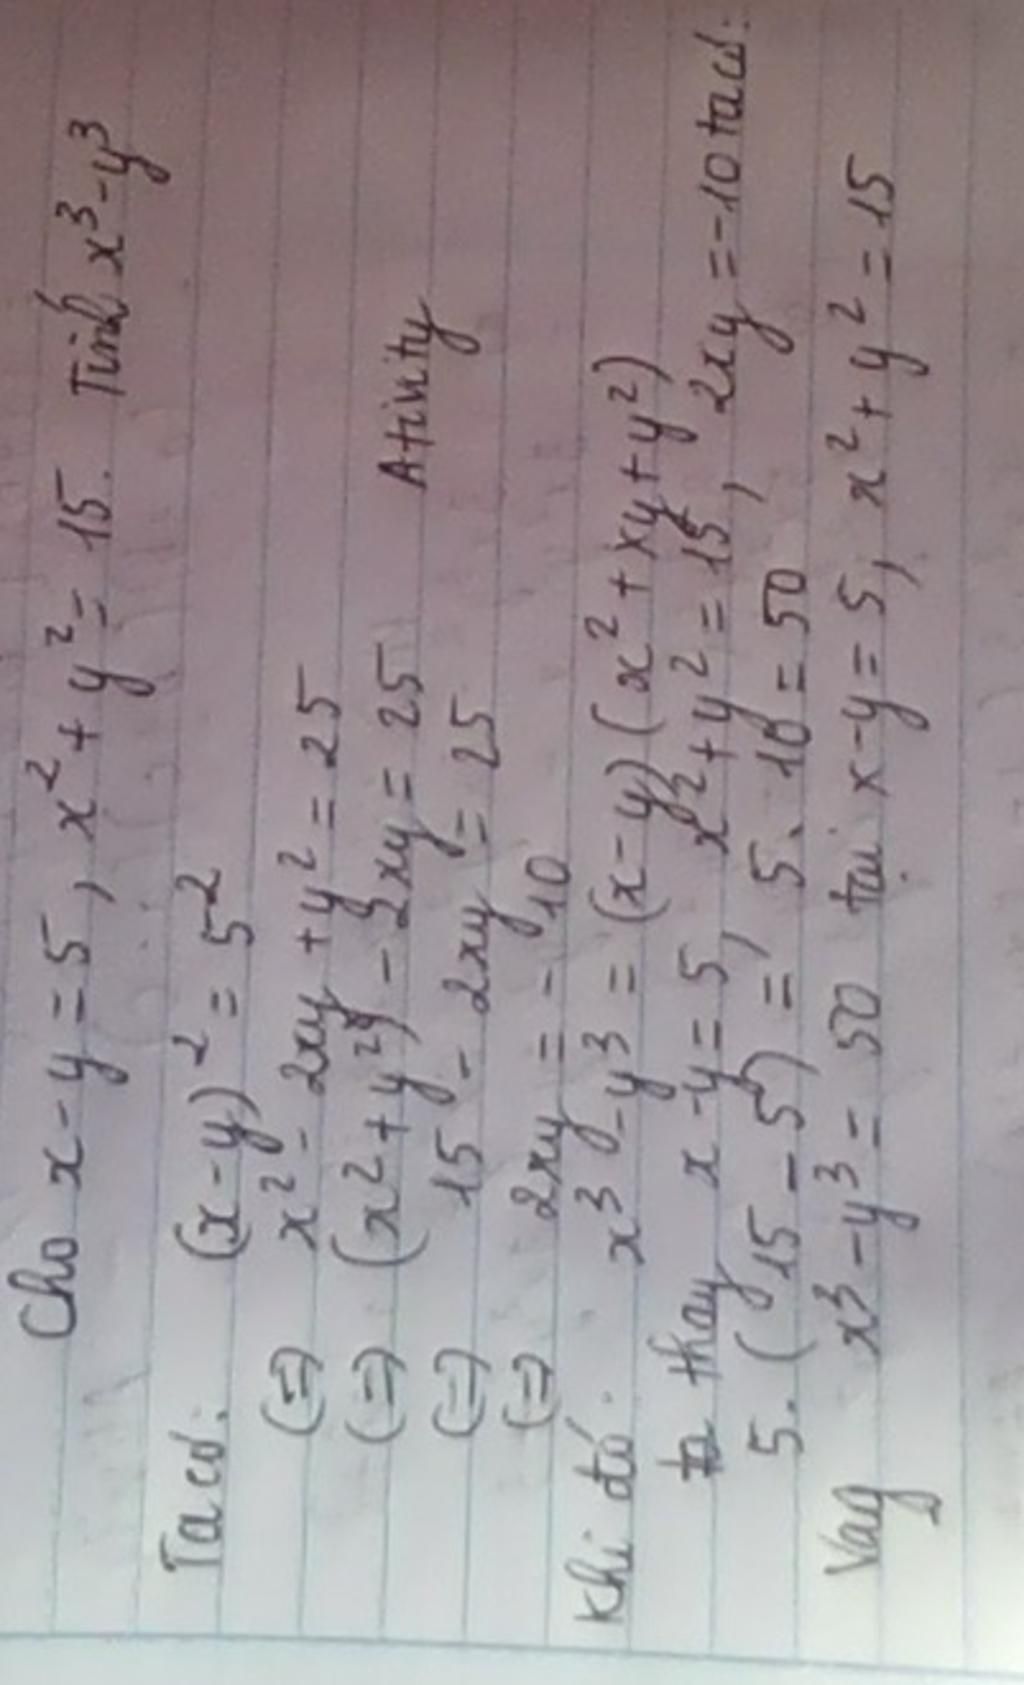 Cho x - y = 5, x² + y² = 15. Tính x³ - y³
Ta có: (x - y)² = 5²
(=) x² - 2xy + y² = 25
(=) (x² + y²) - 2xy = 25
Atinity
(=) 15 - 2xy = 25
(=) 2xy = - 10
Khi đó: x³ - y³ = (x - y) (x² + xy + y²)
thay x - y = 5, x² + y² = 15, 2xy = -10 ta có:
5. (15 - 5) = 5. 10 = 50
Vay x³ - y³ = 50 tại x - y = 5, x² + y² = 15